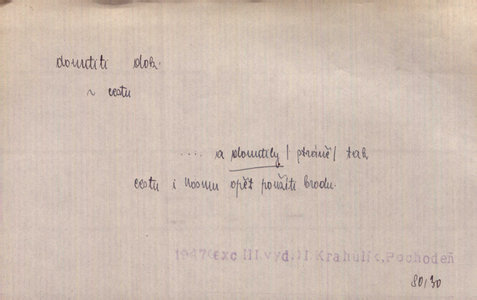 domítiti dok.
~ cestu
.... a domítily / stráně / tak
cestu i Vosmu opět použíti brodu.
1947(exc III.vyd.) J. Krahulík, Pochodeň
80/30